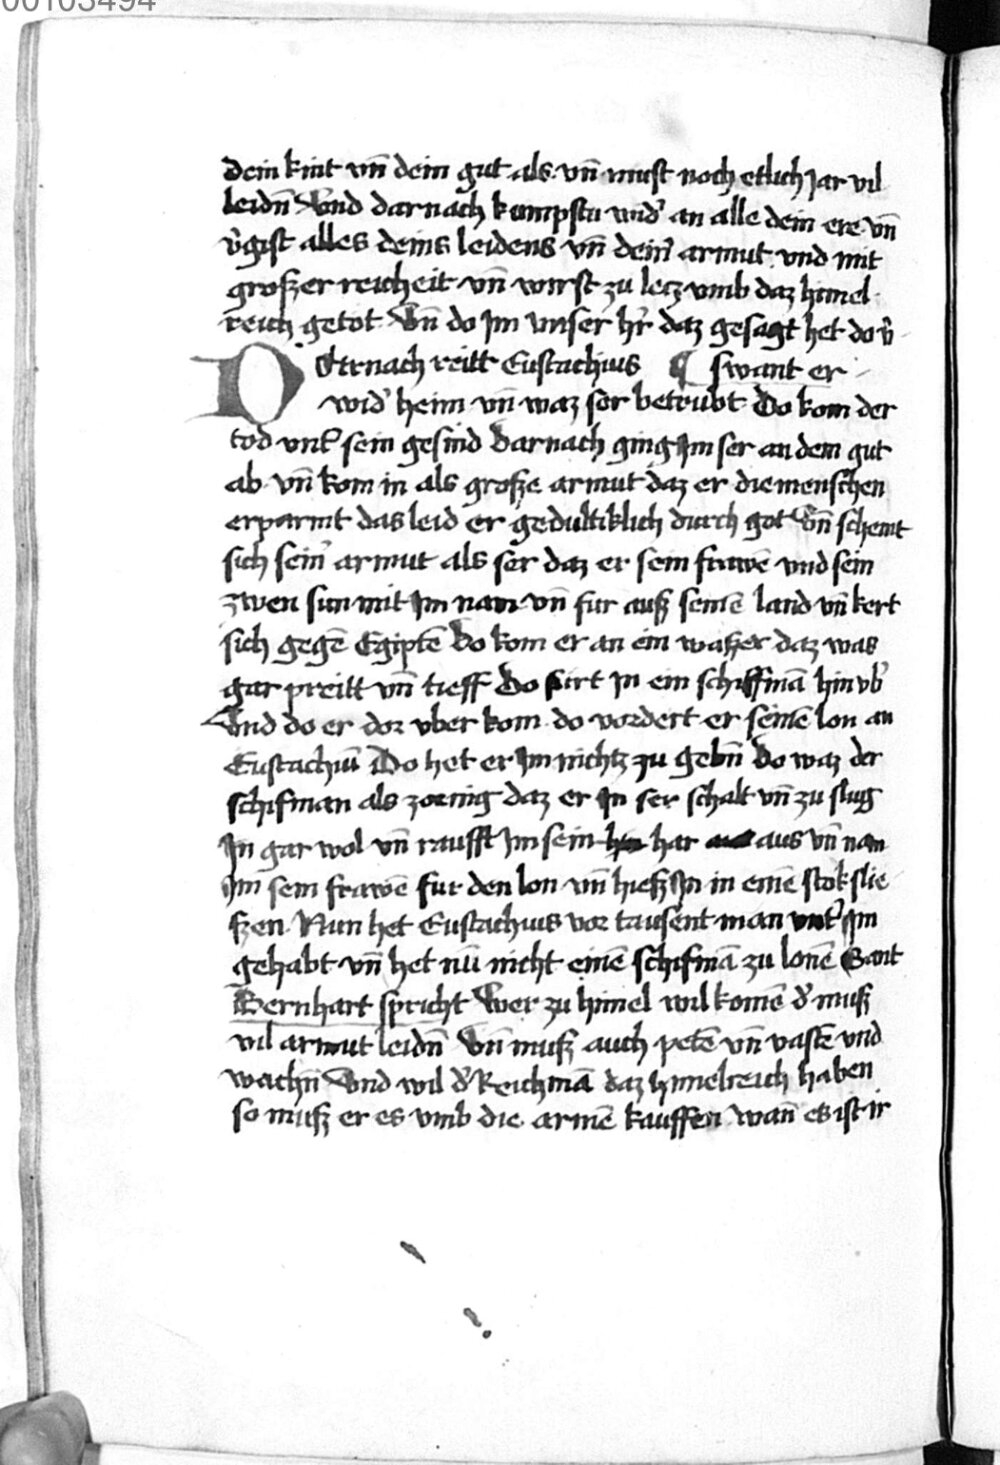 00103494
dein kint vn̄ dein gut als vn̄ must noch etlich Jar vil
leidn̄ Vnd darnach kumpstu wid᷑ an alle dein ere vn̄
v᷑gist alles deins leidens vn̄ dein᷑ armut vnd mit
großer reicheit vn̄ wirst zu lecz vmb daz himel
reich getot Vn̄ do Jm vnser hr̄ daz gesagt het do v᷑
Darnach reitt Eustachius ¶ swant er
wid᷑ heim vn̄ waz ser betrubt Do kom der
tod vnt᷑ sein gesind Darnach ging Jm ser an dem gut
ab vn̄ kom in als große armut daz er die menschen
erparmt das leid er gedultiklich durch got Vn̄ schemt
sich sein᷑ armut als ser daz er sein frawē vnd sein
zwen sun mit Jm nam vn̄ fur auß seinē land vn̄ kert
sich gegē Egiptē Do kom er an ein waßer daz was
gar preitt vn̄ tieff Do furt Jn ein schiffmā hin vb᷑
Vnd do er dor vber kom do vordert er seinē lon an
Eustachiū Do het er Jm nichtz zu gebn̄ Do waz der
schifman als zornig daz er Jn ser schalt vn̄ zu slug
Jn gar wol vn̄ raufft Jm sein har aus vn̄ nam
Jm sein frawē fur den lon vn̄ hieß Jn in einē stok slie
ßen Nun het Eustachius vor tausent man vnt᷑ Jm
gehabt vn̄ het nū nicht einē schifmā zu lonē Sant
Bernhart spricht Wer zu himel wil komē d᷑ muß
vil armut leidn̄ Vn̄ muß auch petē vn̄ vastē vnd
wachn̄ Vnd wil d᷑ Reich mā daz himelreich haben
so muß er es vmb die armē kauffen wan̄ es ist ir